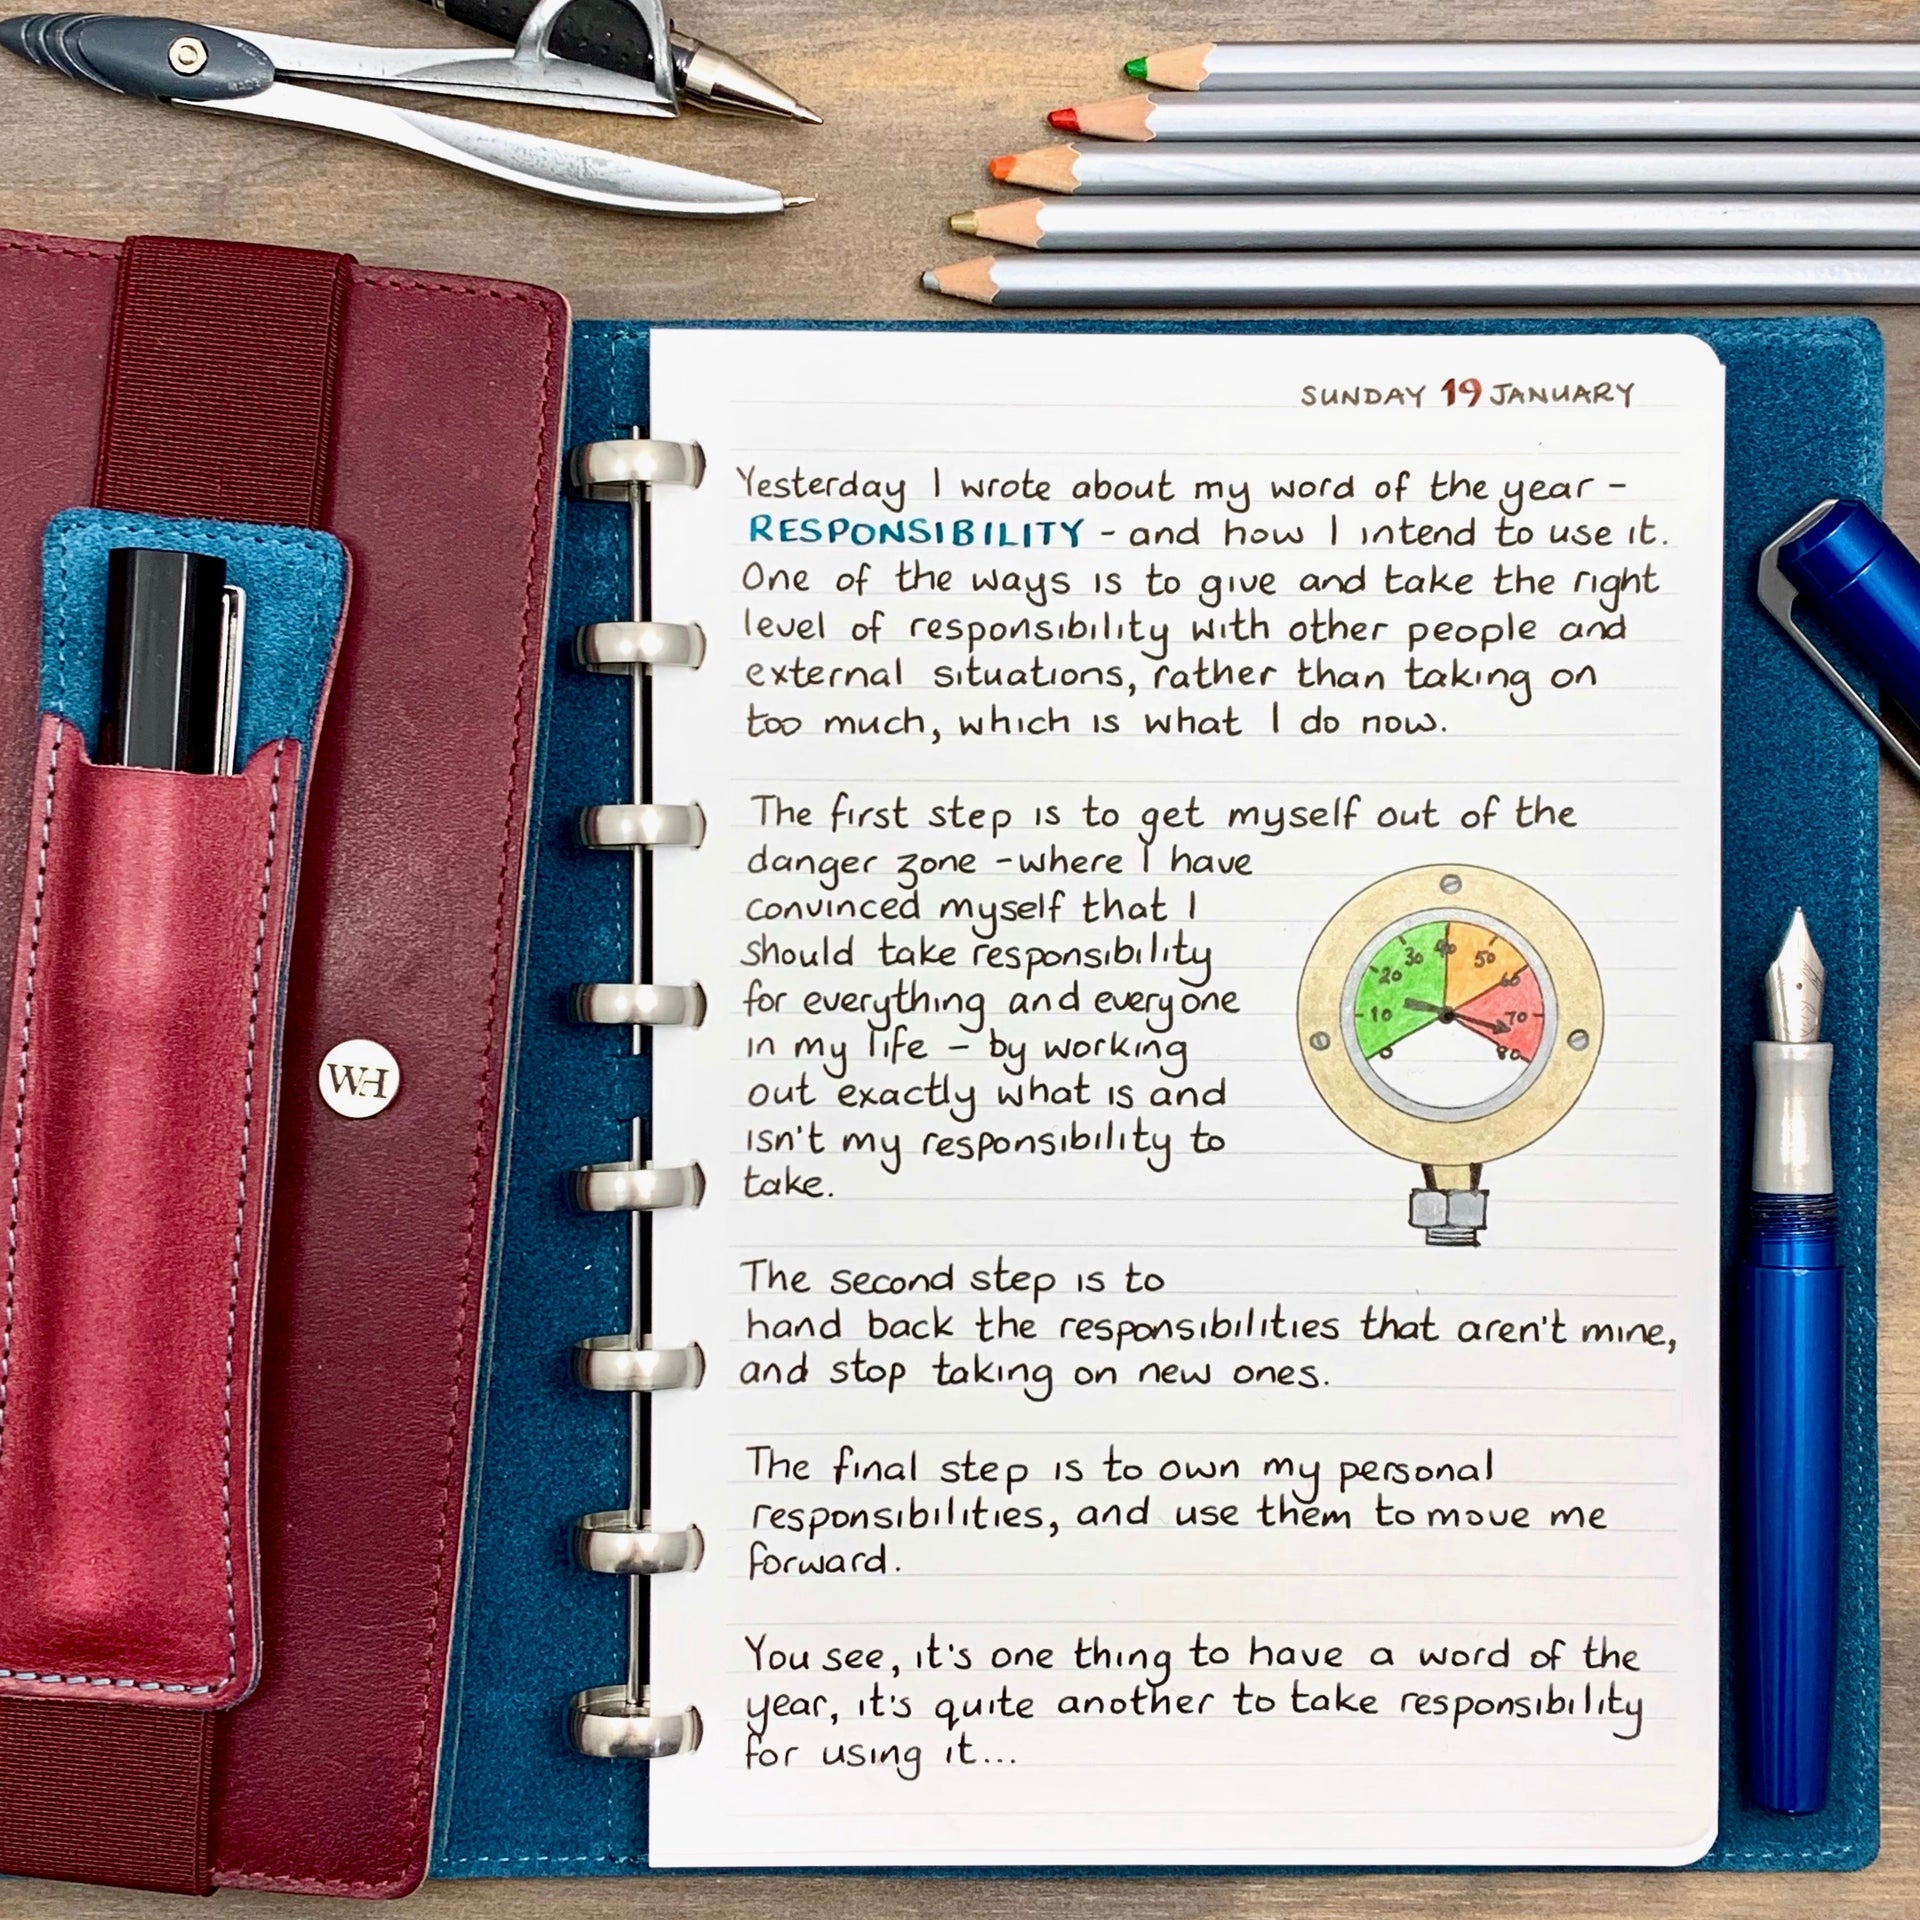 SUNDAY 19 JANUARY
Yesterday I wrote about my word of the year -
RESPONSIBILITY - and how I intend to use it.
One of the ways is to give and take the right
level of responsibility with other people and
external situations, rather than taking on
too much, which is what I do now.
The first step is to get myself out of the
danger zone - where I have
convinced myself that I
should take responsibility
for everything and everyone
in my life - by working
out exactly what is and
isn't my responsibility to
take.
0 10 20 30 40 50 60 70 80
The second step is to
hand back the responsibilities that aren't mine,
and stop taking on new ones.
The final step is to own my personal
responsibilities, and use them to move me
forward.
You see, it's one thing to have a word of the
year, it's quite another to take responsibility
for using it...
WH